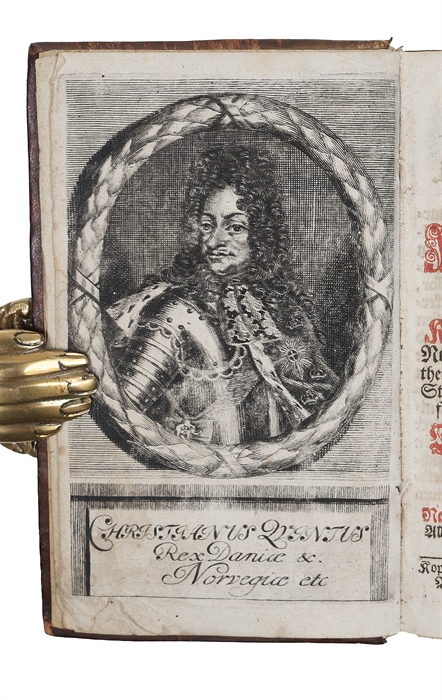 CHRISTIANUS QVINTUS
Rex Daniæ &.
Norvegiæ etc
the
St
Kop